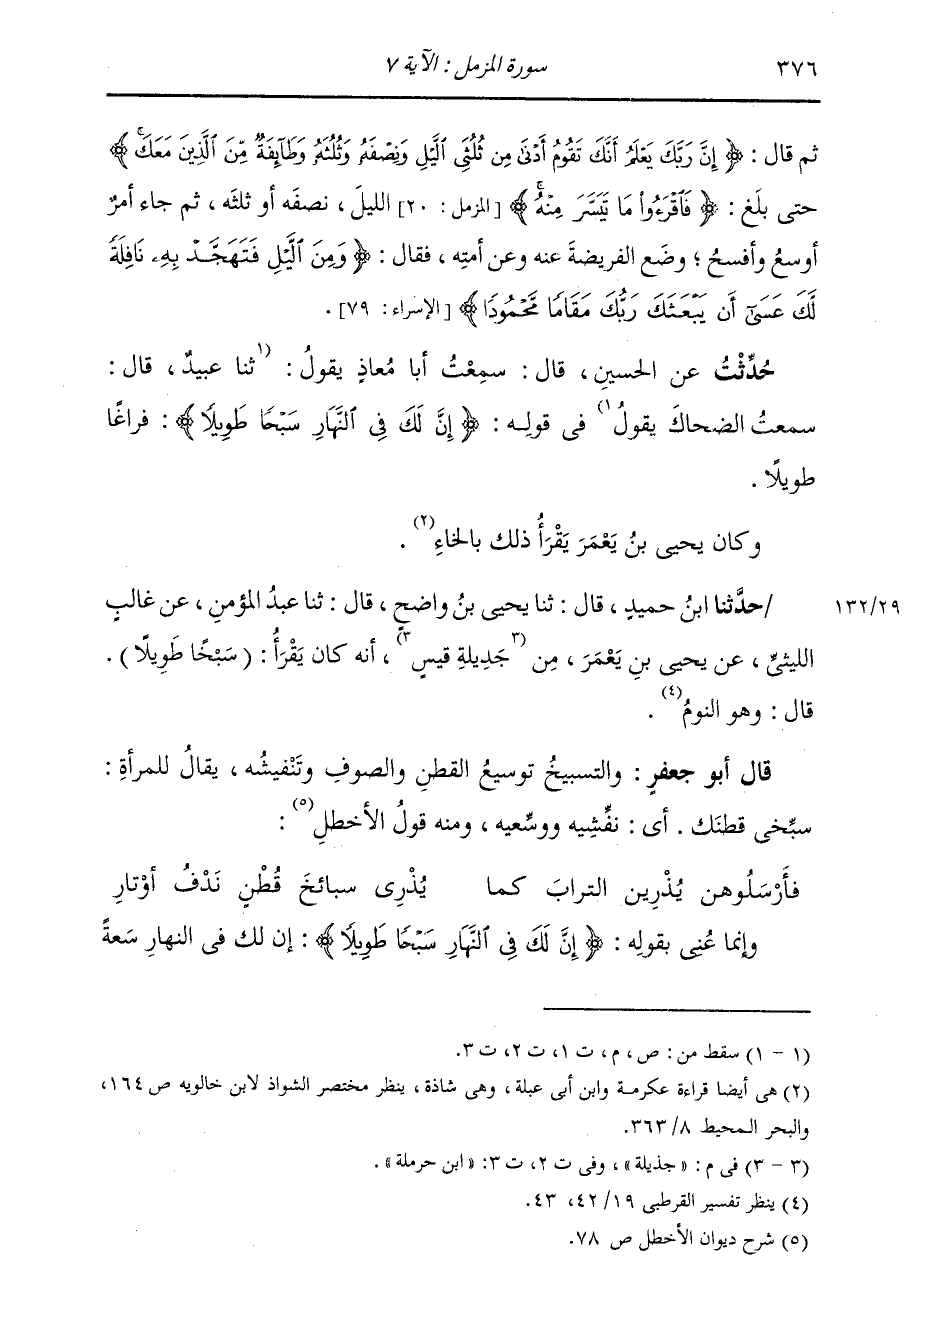 ٣٧٦ سورة المزمل : الآية ٧
ثم قال : ﴿ إِنَّ رَبَّكَ يَعْلَمُ أَنَّكَ تَقُومُ أَدْنَىٰ مِن ثُلُثَيِ ٱلَّيْلِ وَنِصْفَهُۥ وَثُلُثَهُۥ وَطَآئِفَةٌ مِّنَ ٱلَّذِينَ مَعَكَۚ ﴾
حتى بلَغ : ﴿ فَٱقْرَءُوا۟ مَا تَيَسَّرَ مِنْهُۚ ﴾ [المزمل : ٢٠] الليلَ ، نصفَه أو ثلثَه ، ثم جاء أمرٌ
أوسعُ وأفسحُ ؛ وضَع الفريضةَ عنه وعن أمتِه ، فقال : ﴿ وَمِنَ ٱلَّيْلِ فَتَهَجَّدْ بِهِۦ نَافِلَةً
لَّكَ عَسَىٰٓ أَن يَبْعَثَكَ رَبُّكَ مَقَامًا مَّحْمُودًا ﴾ [الإسراء : ٧٩] .
حُدِّثْتُ عن الحسينِ ، قال : سمِعْتُ أبا مُعاذٍ يقولُ : (١ ثنا عبيدٌ ، قال :
سمعتُ الضحاكَ يقولُ ١) فى قولِه : ﴿ إِنَّ لَكَ فِى ٱلنَّهَارِ سَبْحًا طَوِيلًا ﴾ : فراغًا
طويلًا .
وكان يحيى بنُ يَعْمَرَ يَقْرَأُ ذلك بالخاءِ (٢) .
١٣٢/٢٩ /حدَّثنا ابنُ حميدٍ ، قال : ثنا يحيى بنُ واضحٍ ، قال : ثنا عبدُ المؤمنِ ، عن غالبٍ
الليثىِّ ، عن يحيى بنِ يَعْمَرَ ، مِن (٣ جَدِيلةِ قيسٍ ٣) ، أنه كان يَقْرَأُ : (سَبْخًا طَوِيلًا) .
قال : وهو النومُ (٤) .
قال أبو جعفرٍ : والتسبيخُ توسيعُ القطنِ والصوفِ وتَنْفيشُه ، يقالُ للمرأةِ :
سبِّخى قطنَك . أى : نفِّشِيه ووسِّعيه ، ومنه قولُ الأخطلِ (٥) :
فأَرْسَلُوهن يُذْرِين الترابَ كما يُذْرِى سبائخَ قُطْنٍ نَدْفُ أوْتارِ
وإنما عُنِى بقولِه : ﴿ إِنَّ لَكَ فِى ٱلنَّهَارِ سَبْحًا طَوِيلًا ﴾ : إن لك فى النهارِ سَعةً
(١ - ١) سقط من : ص ، م ، ت ١ ، ت ٢ ، ت ٣.
(٢) هى أيضا قراءة عكرمة وابن أبى عبلة ، وهى شاذة ، ينظر مختصر الشواذ لابن خالويه ص ١٦٤ ،
والبحر المحيط ٨/ ٣٦٣.
(٣ - ٣) فى م : « جذيلة » ، وفى ت ٢ ، ت ٣: « ابن حرملة » .
(٤) ينظر تفسير القرطبى ١٩/ ٤٢ ، ٤٣.
(٥) شرح ديوان الأخطل ص ٧٨.